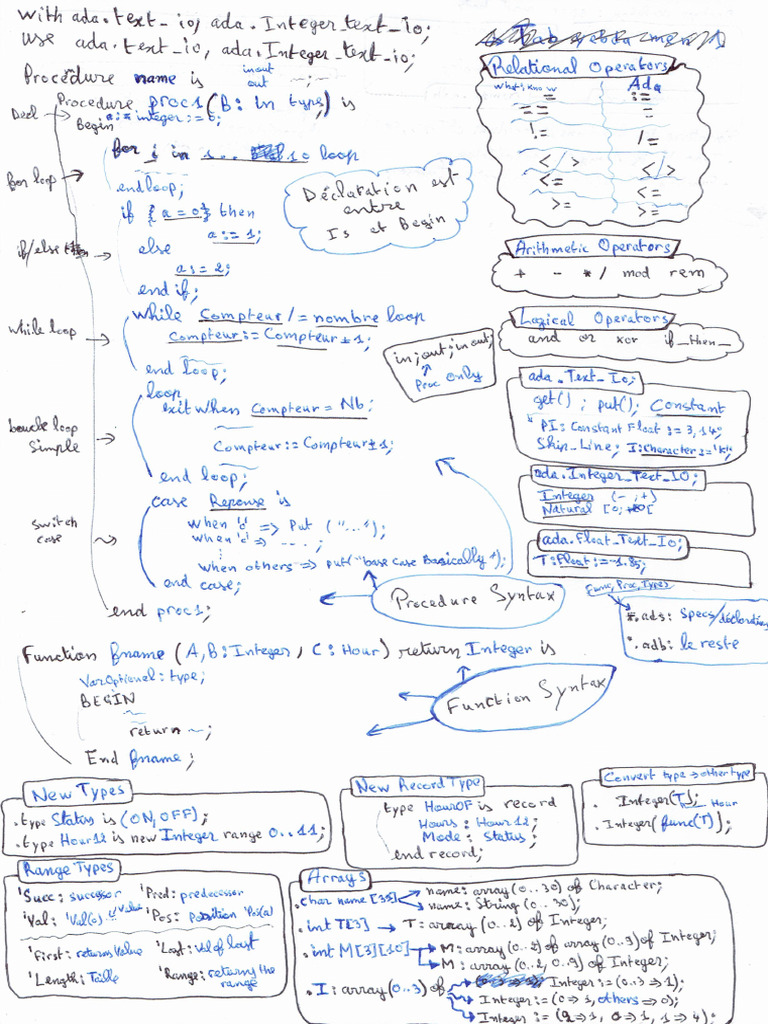 with ada.text_io, ada.Integer_text_io;
use ada.text_io, ada.Integer_text_io;
Procédure name is
inout
out
Procedure proc1 (B: in type) is
Decl
a:= integer := 5;
Begin
for i in 1.. 10 loop
for loop
end loop;
if { a = 0} then
a := 1;
if/else
else
a := 2;
end if;
while Compteur /= nombre loop
while loop
Compteur := Compteur ± 1;
end loop;
loop
exit when Compteur = Nb;
boucle loop
simple
Compteur := Compteur ± 1;
end loop;
case Reponse is
switch
case
when 'c' => Put ("...");
when 'c' => - - - . ;
when others => put("base case Basically");
end case;
end proc1;
Procedure Syntax
Déclaration est
entre
Is et Begin
in; out; in out;
Proc Only
Function fname (A,B: Integer, C: Hour) return Integer is
VarOptionel: type;
BEGIN
return ~;
End fname;
Function Syntax
Relational Operators
What u know Ada
= :=
== =
!= /=
</> </>
<= <=
>= >=
Arithmetic Operators
+ - * / mod rem
Logical Operators
and or xor if_then_
ada.Text_Io;
get() ; put(); Constant
PI: Constant Float := 3,14;
Skip_Line; I: Character := 'K';
ada.Integer_Text_IO;
Integer (- , +)
Natural [0; +∞[
ada.Float_Text_Io;
T: Float := -1.85;
Func, Proc, Types
*.ads: Specs/déclaration
*.adb: le reste
New Types
.type Status is (ON, OFF);
.type Hour12 is new Integer range 0..11;
New Record Type
type HourOF is record
Hours: Hour12;
Mode: Status;
end record;
Convert type → other type
. Integer(T);
Hour
. Integer(func(T));
Range Types
'Succ: successor 'Pred: predecessor
'Val: 'Val(0) → Value 'Pos: position 'Pos(a)
'First: returns Value 'Last: Val of last
'Length: Table 'Range: returns the
range
Arrays
.char name [35] name: array (0..30) of Character;
name: String (0..30);
.int T[3] → T: array (0..2) of Integer;
.int M[3][10] M: array (0..2) of array (0..9) of Integer;
M: array (0..2, 0..9) of Integer;
.I: array (0..3) of Integer := (0..3 => 1);
Integer := (0 => 1, others => 0);
Integer := (2 => 1, 0 => 1, 1 => 4);